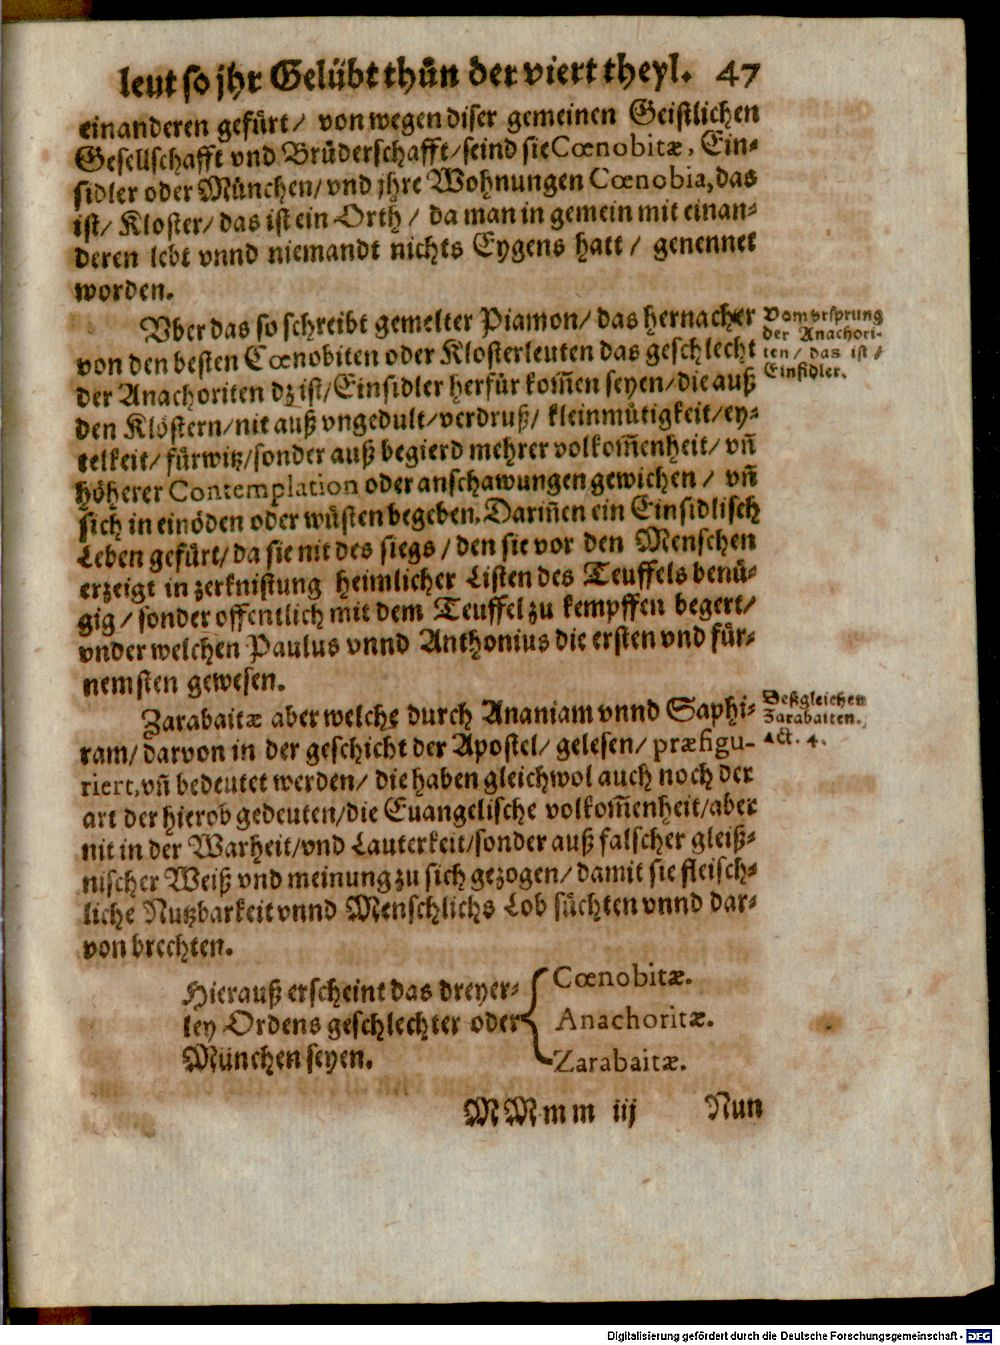 leut so jhr Gelübt thůn der viert theyl. 47
einanderen gefürt / von wegen diser gemeinen Geistlichen
Gesellschafft vnd Brüderschafft / seind sie Cœnobitæ, Ein-
sidler oder München / vnd jhre Wohnungen Cœnobia, das
ist / Kloster / das ist ein Orth / da man in gemein mit einan-
deren lebt vnnd niemandt nichts Eygens hatt / genennet
worden.
Vber das so schreibt gemelter Piamon / das hernacher
von den besten Cœnobiten oder Klosterleuten das geschlecht
der Anachoriten dz ist / Einsidler herfür kom̃en seyen / die auß
den Klöstern / nit auß vngedult / verdruß / kleinmütigkeit / ey-
telkeit / fürwitz / sonder auß begierd mehrer volkom̃enheit / vñ
höherer Contemplation oder anschawungen gewichen / vñ
sich in einöden oder wüsten begeben. Dariñen ein Einsidlisch
Leben gefürt / da sie nit des siegs / den sie vor den Menschen
erzeigt in zerknistung heimlicher Listen des Teuffels benü-
gig / sonder offentlich mit dem Teuffel zu kempffen begert /
vnder welchen Paulus vnnd Anthonius die ersten vnd für-
nemsten gewesen.
Vom vrsprung
der Anachori-
ten / das ist /
Einsidler.
Zarabaitæ aber welche durch Ananiam vnnd Saphi-
ram / darvon in der geschicht der Apostel / gelesen / præfigu-
riert, vñ bedeutet werden / die haben gleichwol auch noch der
art der hierob gedeuten / die Euangelische volkom̃enheit / aber
nit in der Warheit / vnd Lauterkeit / sonder auß falscher gleiß-
nischer Weiß vnd meinung zu sich gezogen / damit sie fleisch-
liche Nutzbarkeit vnnd Menschlichs Lob süchten vnnd dar-
von brechten.
Deßgleichen
Zarabaiten.
Act. 4.
Hierauß erscheint das dreyer-
ley Ordens geschlechter oder
München seyen.
Cœnobitæ.
Anachoritæ.
Zarabaitæ.
MMmm iij Nun
Digitalisierung gefördert durch die Deutsche Forschungsgemeinschaft - DFG